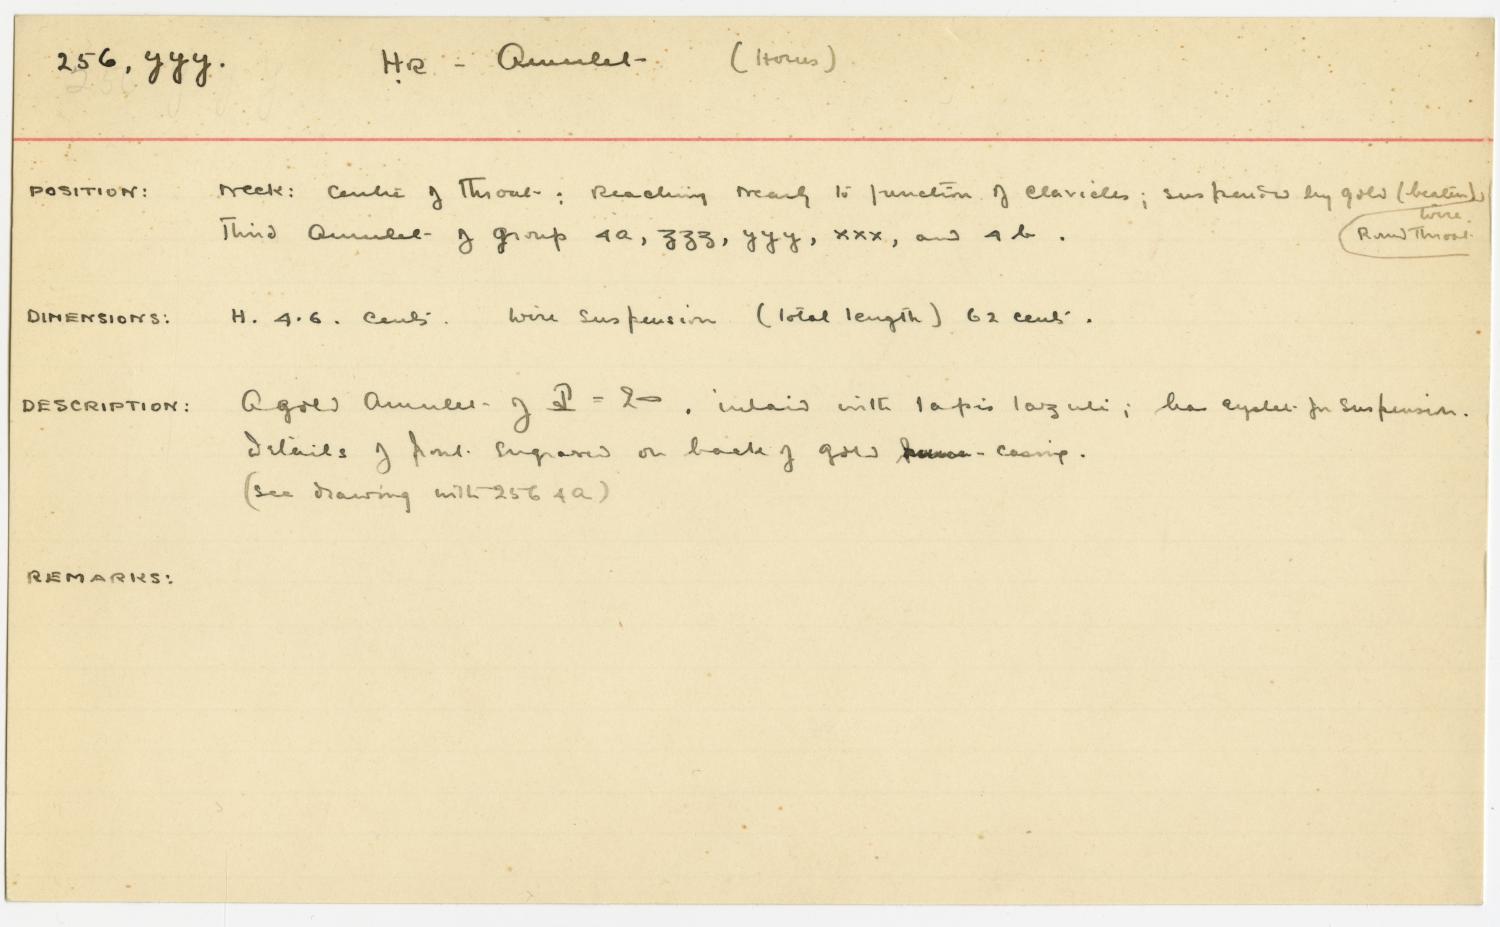 256, yyy. Ḥr - Amulet (Horus)
POSITION: Neck: Centre of Throat: Reaching nearly to junction of clavicles; suspended by gold (beaten)
wire.
Third Amulet of group 4a, zzz, yyy, xxx, and 4b. Round Throat
DIMENSIONS: H. 4.6. cents. Wire suspension (total length) 62 cents.
DESCRIPTION: A gold Amulet of =, inlaid with lapis lazuli; has eyelet for suspension.
Details of front engraved on back of gold casing.
(see drawing with 256 4a)
REMARKS: